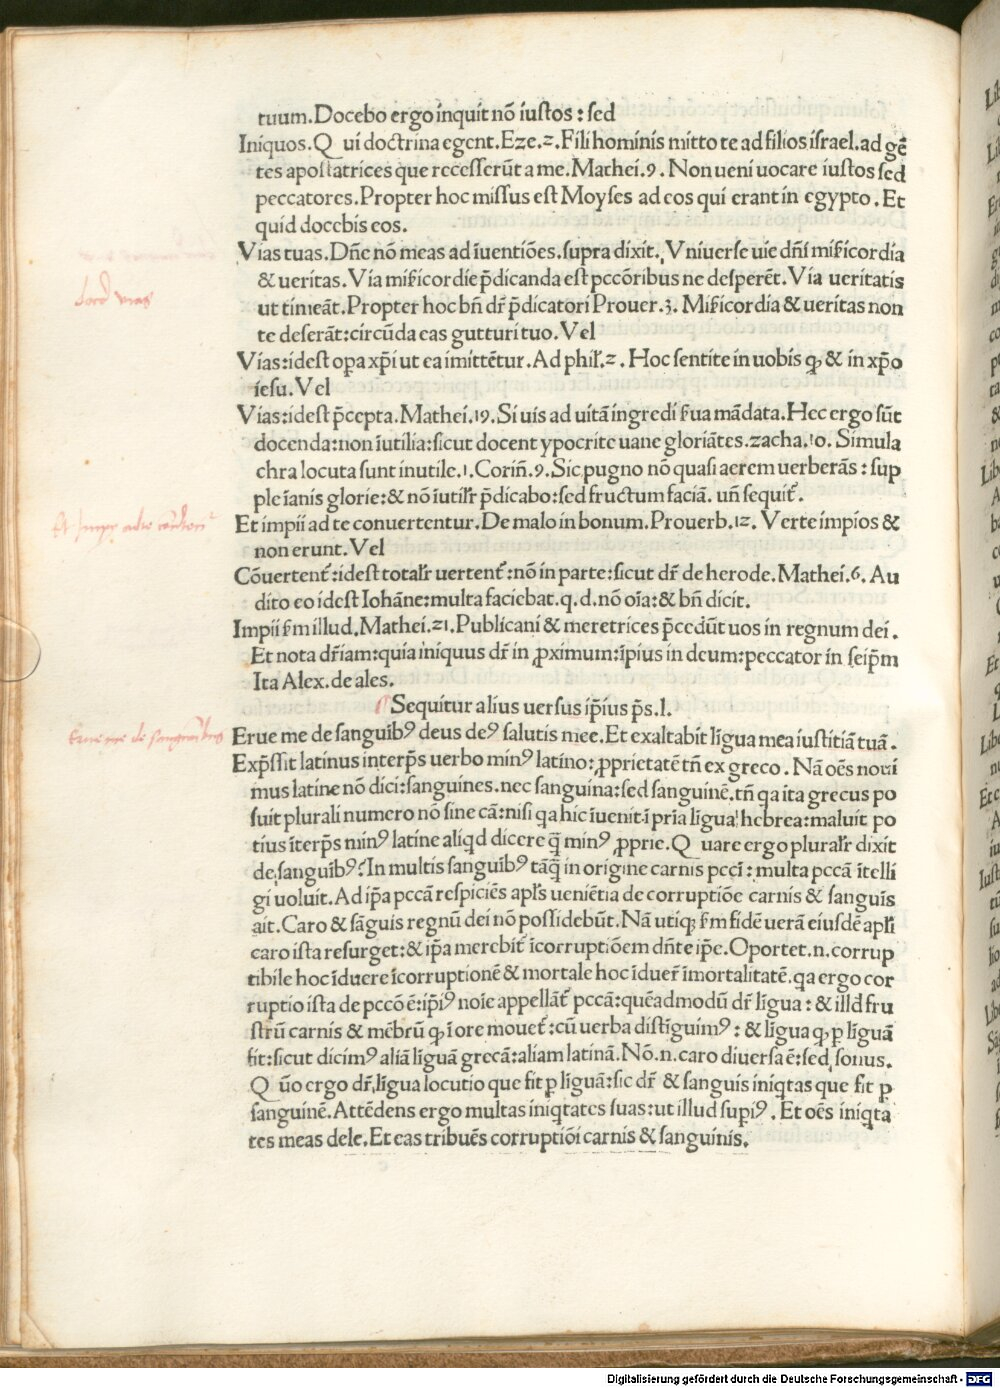 tuum. Docebo ergo inquit nõ iustos : sed
Iniquos. Qui doctrina egent. Eze. 2. Fili hominis mitto te ad filios israel. ad gẽ
tes apostatrices que recesserũt a me. Mathei. 9. Non ueni uocare iustos sed
peccatores. Propter hoc missus est Moyses ad eos qui erant in egypto. Et
quid docebis eos.
Vias tuas. Dñe nõ meas ad iuentiões. supra dixit. Vniuerse uie dñi mi&#x305;cordia
& ueritas. Via mi&#x305;cordie p̃dicanda est pccõribus ne desperẽt. Via ueritatis
ut timeãt. Propter hoc bñ dr̃ p̃dicatori Prouer. 3. Misericordia & ueritas non
te deserãt: circũda eas gutturi tuo. Vel
Vias: idest opa xp̃i ut ea imittẽtur. Ad phil'. 2. Hoc sentite in uobis q̃ & in xp̃o
iesu. Vel
Vias: idest p̃cepta. Mathei. 19. Si uis ad uitã ingredi s̃ua mãdata. Hec ergo sũt
docenda: non ĩutilia: sicut docent ypocrite uane gloriãtes. zacha. 10. Simula
chra locuta sunt inutile. 1. Coriñ. 9. Sic pugno nõ quasi aerem uerberãs : sup
ple ĩanis glorie: & nõ ĩutilr̃ p̃dicabo: sed fructum faciã. uñ sequit̃.
Et impii ad te conuertentur. De malo in bonum. Prouerb. 12. Verte impios &
non erunt. Vel
Cõuertent̃: idest totalr̃ uertent̃: nõ in parte: sicut dr̃ de herode. Mathei. 6. Au
dito eo idest Iohãne: multa faciebat. q. d. nõ oĩa: & bñ dicit.
Impii s̃m illud. Mathei. 21. Publicani & meretrices p̃cedũt uos in regnum dei.
Et nota dr̃iam: quia iniquus dr̃ in ꝓximum: ĩpius in deum: peccator in seip̃m
Ita Alex. de ales.
Sequitur alius uersus ip̃ius p̃s. l.
Erue me de sanguibꝰ deus deꝰ salutis mee. Et exaltabit lĩgua mea iustitiã tuã.
Exp̃ssit latinus interp̃s uerbo minꝰ latino: ꝓprietatẽ tñ ex greco. Nã oẽs noui
mus latine nõ dici: sanguines. nec sanguina: sed sanguinẽ. tñ qa ita grecus po
suit plurali numero nõ sine cã: nisi qa hic ĩuenit ĩ pria lĩgua hebrea: maluit po
tius ĩterp̃s minꝰ latine aliqd dicere q̃ minꝰ ꝓprie. Quare ergo pluralr̃ dixit
de sanguibꝰ? In multis sanguibꝰ tãq̃ in origine carnis pcci : multa pccã ĩtelli
gi uoluit. Ad ip̃a pccã respiciẽs apl's ueniẽtia de corruptiõe carnis & sanguis
ait. Caro & sãguis regnũ dei nõ possidebũt. Nã utiqꝫ s̃m fidẽ uerã eiusdẽ apl'i
caro ista resurget: & ip̃a merebit̃ ĩcorruptiõem dñte ip̃e. Oportet. n. corrup
tibile hoc ĩduere ĩcorruptionẽ & mortale hoc ĩduer̃ ĩmortalitatẽ. qa ergo cor
ruptio ista de pccõ ẽ: ip̃iꝰ noie appellãt̃ pccã: quẽadmodũ dr̃ lĩgua : & illd fru
strũ carnis & mẽbrũ qꝫ ĩ ore mouet̃: cũ uerba distiguimꝰ : & lĩgua qꝫ ꝑ lĩguã
fit: sicut dicimꝰ aliã lĩguã grecã: aliam latinã. Nõ. n. caro diuersa ẽ: sed sonus.
Qũo ergo dr̃ lĩgua locutio que fit ꝑ lĩguã: sic dr̃ & sanguis iniqtas que fit ꝑ
sanguinẽ. Attẽdens ergo multas iniqtates suas: ut illud supiꝰ. Et oẽs iniqta
tes meas dele. Et eas tribuẽs corruptiõi carnis & sanguinis.
Erue me de sanguibus
Digitalisierung gefördert durch die Deutsche Forschungsgemeinschaft - DFG